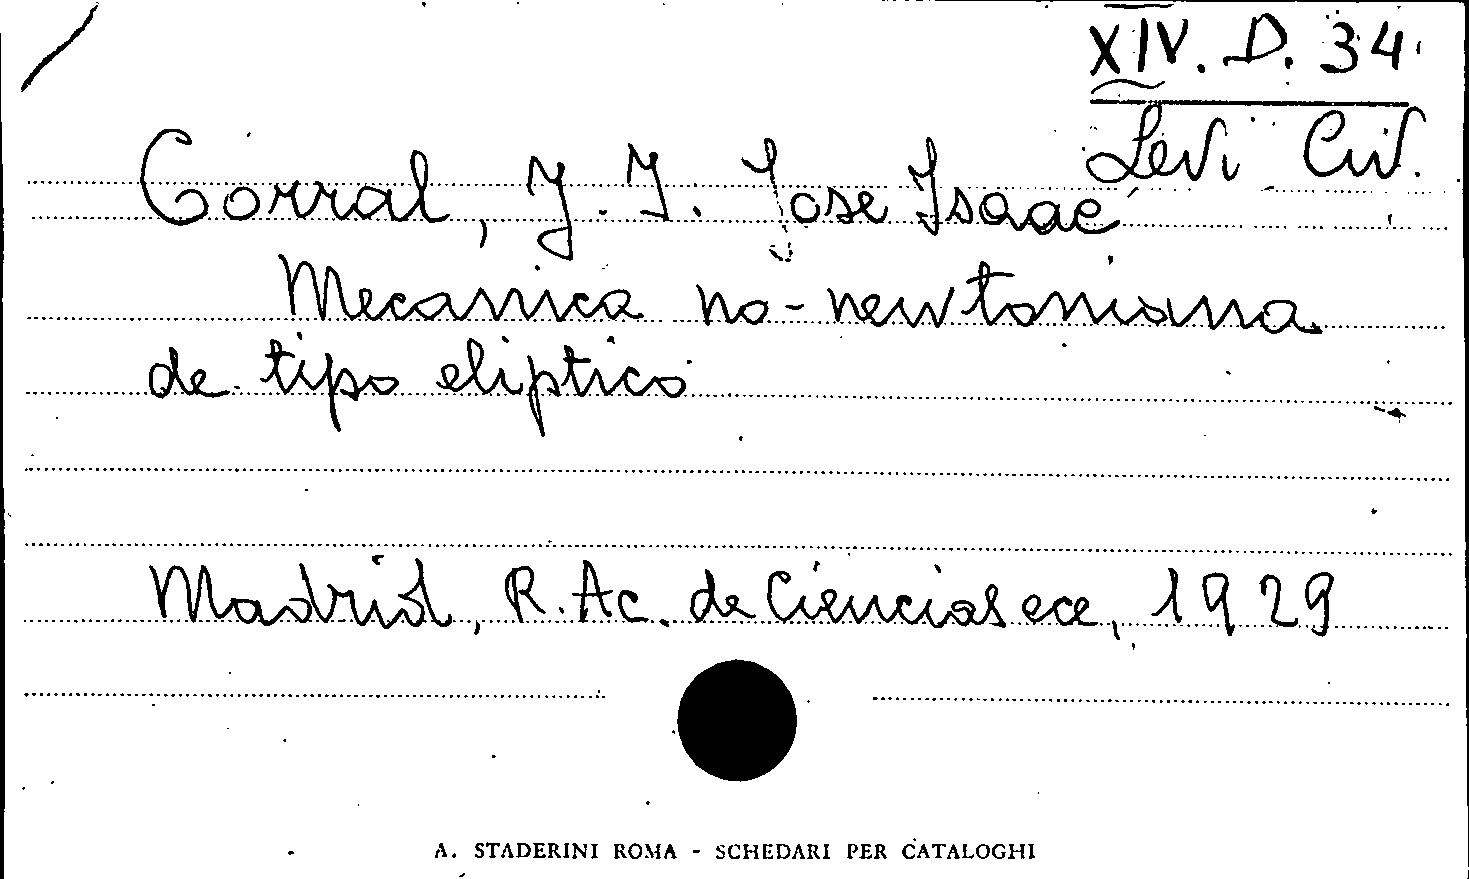 XIV. D. 34.
Levi Civ.
Corral, J. I. Jose Isaac
Mecanica no-newtoniana
de tipo eliptico
Madrid, R. Ac. de Ciencias ecc, 1929
A. STADERINI ROMA - SCHEDARI PER CATALOGHI